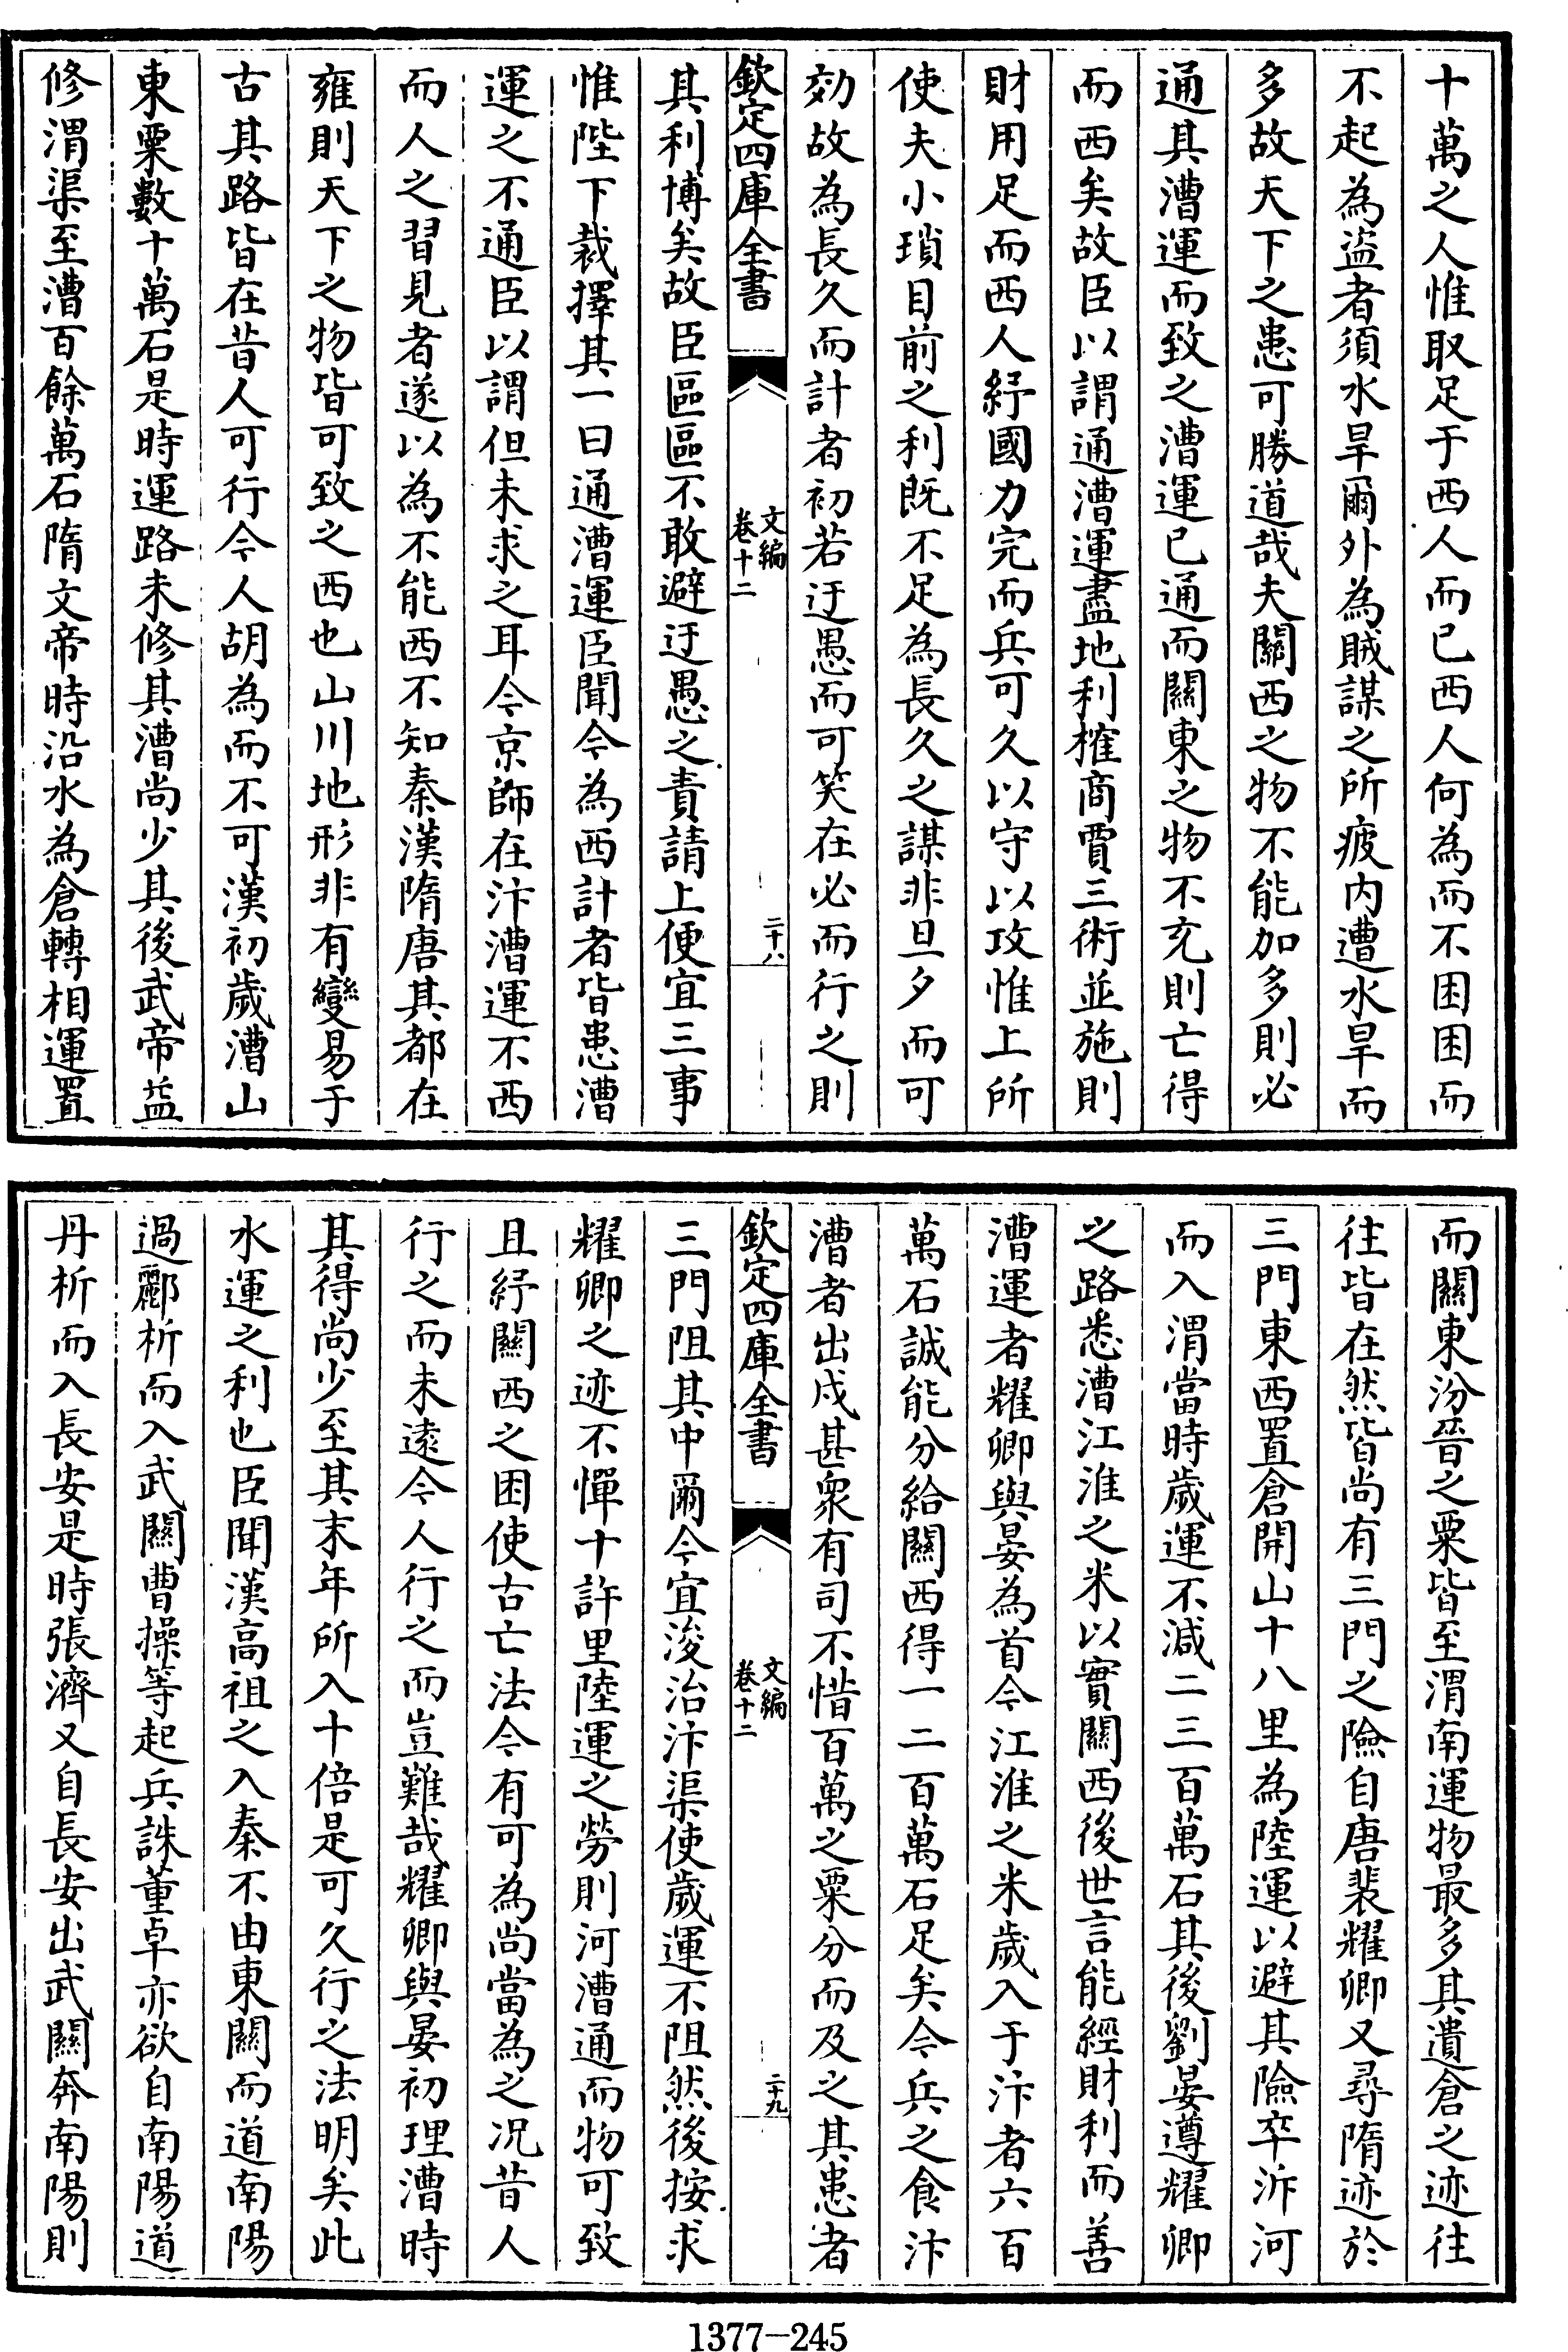 十萬之人惟取足于西人而已西人何為而不困困而
不起為盜者須水旱爾外為賊謀之所疲内遭水旱而
多故天下之患可勝道哉夫關西之物不能加多則必
通其漕運而致之漕運已通而關東之物不充則亡得
而西矣故臣以謂通漕運盡地利榷商賈三術並施則
財用足而西人紓國力完而兵可久以守以攻惟上所
使夫小瑣目前之利既不足為長久之謀非旦夕而可
効故為長久而計者初若迂愚而可笑在必而行之則
欽定四庫全書
文編
卷十二
二十八
其利博矣故臣區區不敢避迂愚之責請上便宜三事
惟陛下裁擇其一曰通漕運臣聞今為西計者皆患漕
運之不通臣以謂但未求之耳今京師在汴漕運不西
而人之習見者遂以為不能西不知秦漢隋唐其都在
雍則天下之物皆可致之西也山川地形非有變易于
古其路皆在昔人可行今人胡為而不可漢初歲漕山
東粟數十萬石是時運路未修其漕尚少其後武帝益
修渭渠至漕百餘萬石隋文帝時沿水為倉轉相運置
而關東汾晉之粟皆至渭南運物最多其遺倉之迹往
往皆在然皆尚有三門之險自唐裴耀卿又尋隋迹於
三門東西置倉開山十八里為陸運以避其險卒泝河
而入渭當時歲運不減二三百萬石其後劉晏遵耀卿
之路悉漕江淮之米以實關西後世言能經財利而善
漕運者耀卿與晏為首今江淮之米歲入于汴者六百
萬石誠能分給關西得一二百萬石足矣今兵之食汴
漕者出戍甚衆有司不惜百萬之粟分而及之其患者
欽定四庫全書
文編
卷十二
二十九
三門阻其中爾今宜浚治汴渠使歲運不阻然後按求
耀卿之迹不憚十許里陸運之勞則河漕通而物可致
且紓關西之困使古亡法今有可為尚當為之況昔人
行之而未遠今人行之而豈難哉耀卿與晏初理漕時
其得尚少至其末年所入十倍是可久行之法明矣此
水運之利也臣聞漢高祖之入秦不由東關而道南陽
過酈析而入武關曹操等起兵誅董卓亦欲自南陽道
丹析而入長安是時張濟又自長安出武關奔南陽則
1377-245